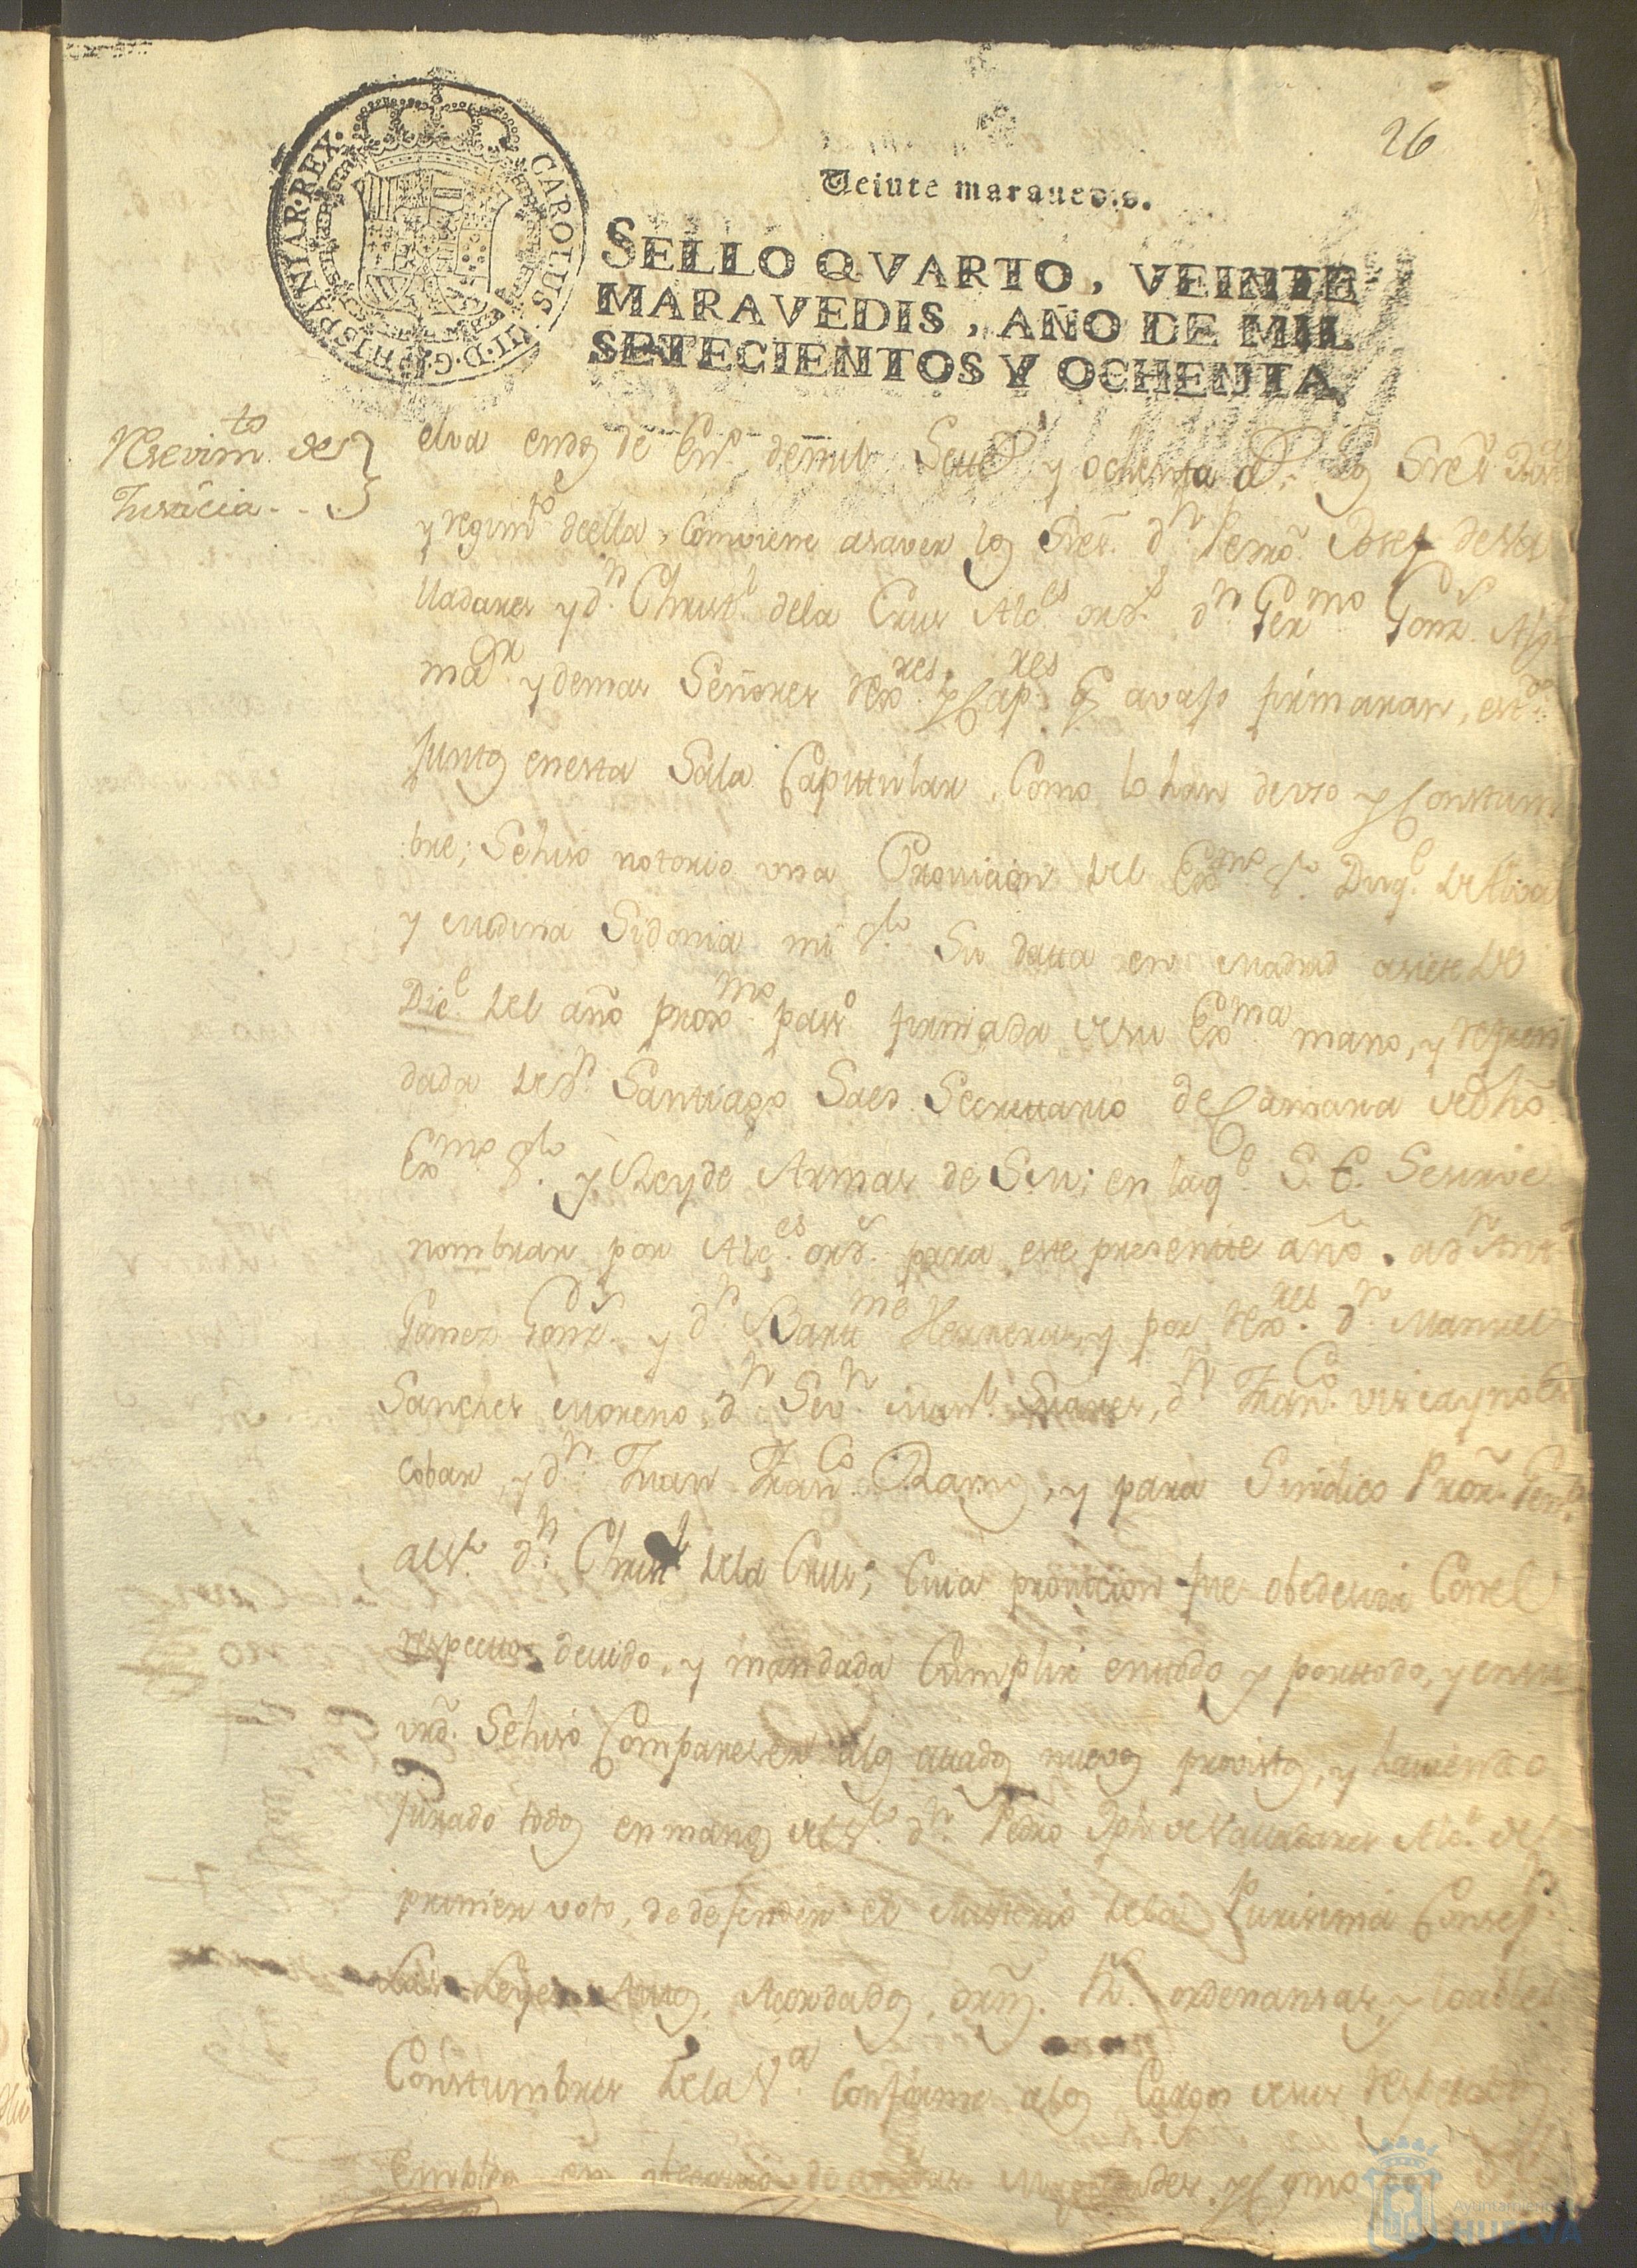 26
CAROLUS III D. G. HISPANIAR. REX.
Veinte maravedis.
SELLO QVARTO, VEINTE
MARAVEDIS, AÑO DE MIL
SETECIENTOS Y OCHENTA
Resevimto de
Justicia
elva en dos de Eno. de mil Settes y ochenta as. los Sres.
y regimto de ella, Combiene asaver los Sres. dn Josef de Va
lladares y dn Christl de la Crus Alces ords. dn Germo Gonz. Algl
mar y demas Señores Rexres y Capres q avajo firmaran, estdo
juntos en esta Sala Capittular, Como lo han de vso y Constum
bre; Sehiso notorio vna Provicion del Exmo Sr. Duqe de Alva
y Medina Sidonia mi Sr. Su datta en Madrid a siete de
Dice del año proxmo passo firmada de su Exma mano, y refren
dada de dn Santiago Saes Secrettario de Camara de dho
Exmo Sr. y Rey de Armas de S.M; en la qe S. E. Sesirve
nombrar por Alces ords. para este presente año a dn Anto
Gomez Gonz. y dn Bartme Herrera, y por Rexres dn Manuel
Sanches Moreno, dn Sevn Manl Suares, dn Franco Viscayno Es
cobar, y dn Juan Franco Ramos, y para Sindico Pror Genl
al Sr. dn Christl de la Crus; Cuia provicion fue obedesida Con el
respecto devido, y mandada Cumplir en todo y por ttodo, y en su
vrd. Sehiso Compareser a los cittados nuevos provistos, y haviendo
jurado todos en manos del Sr. dn Pedro Jph de Valladares Alce del
primer voto, de defender el Misterio de la Purisima Consepn
Las Leyes Auttos, Acordados, ordenansas, y loables
Constumbres de la Va conforme a los Cargos de sus respectos
Empleos
Ayuntamiento de
HUELVA